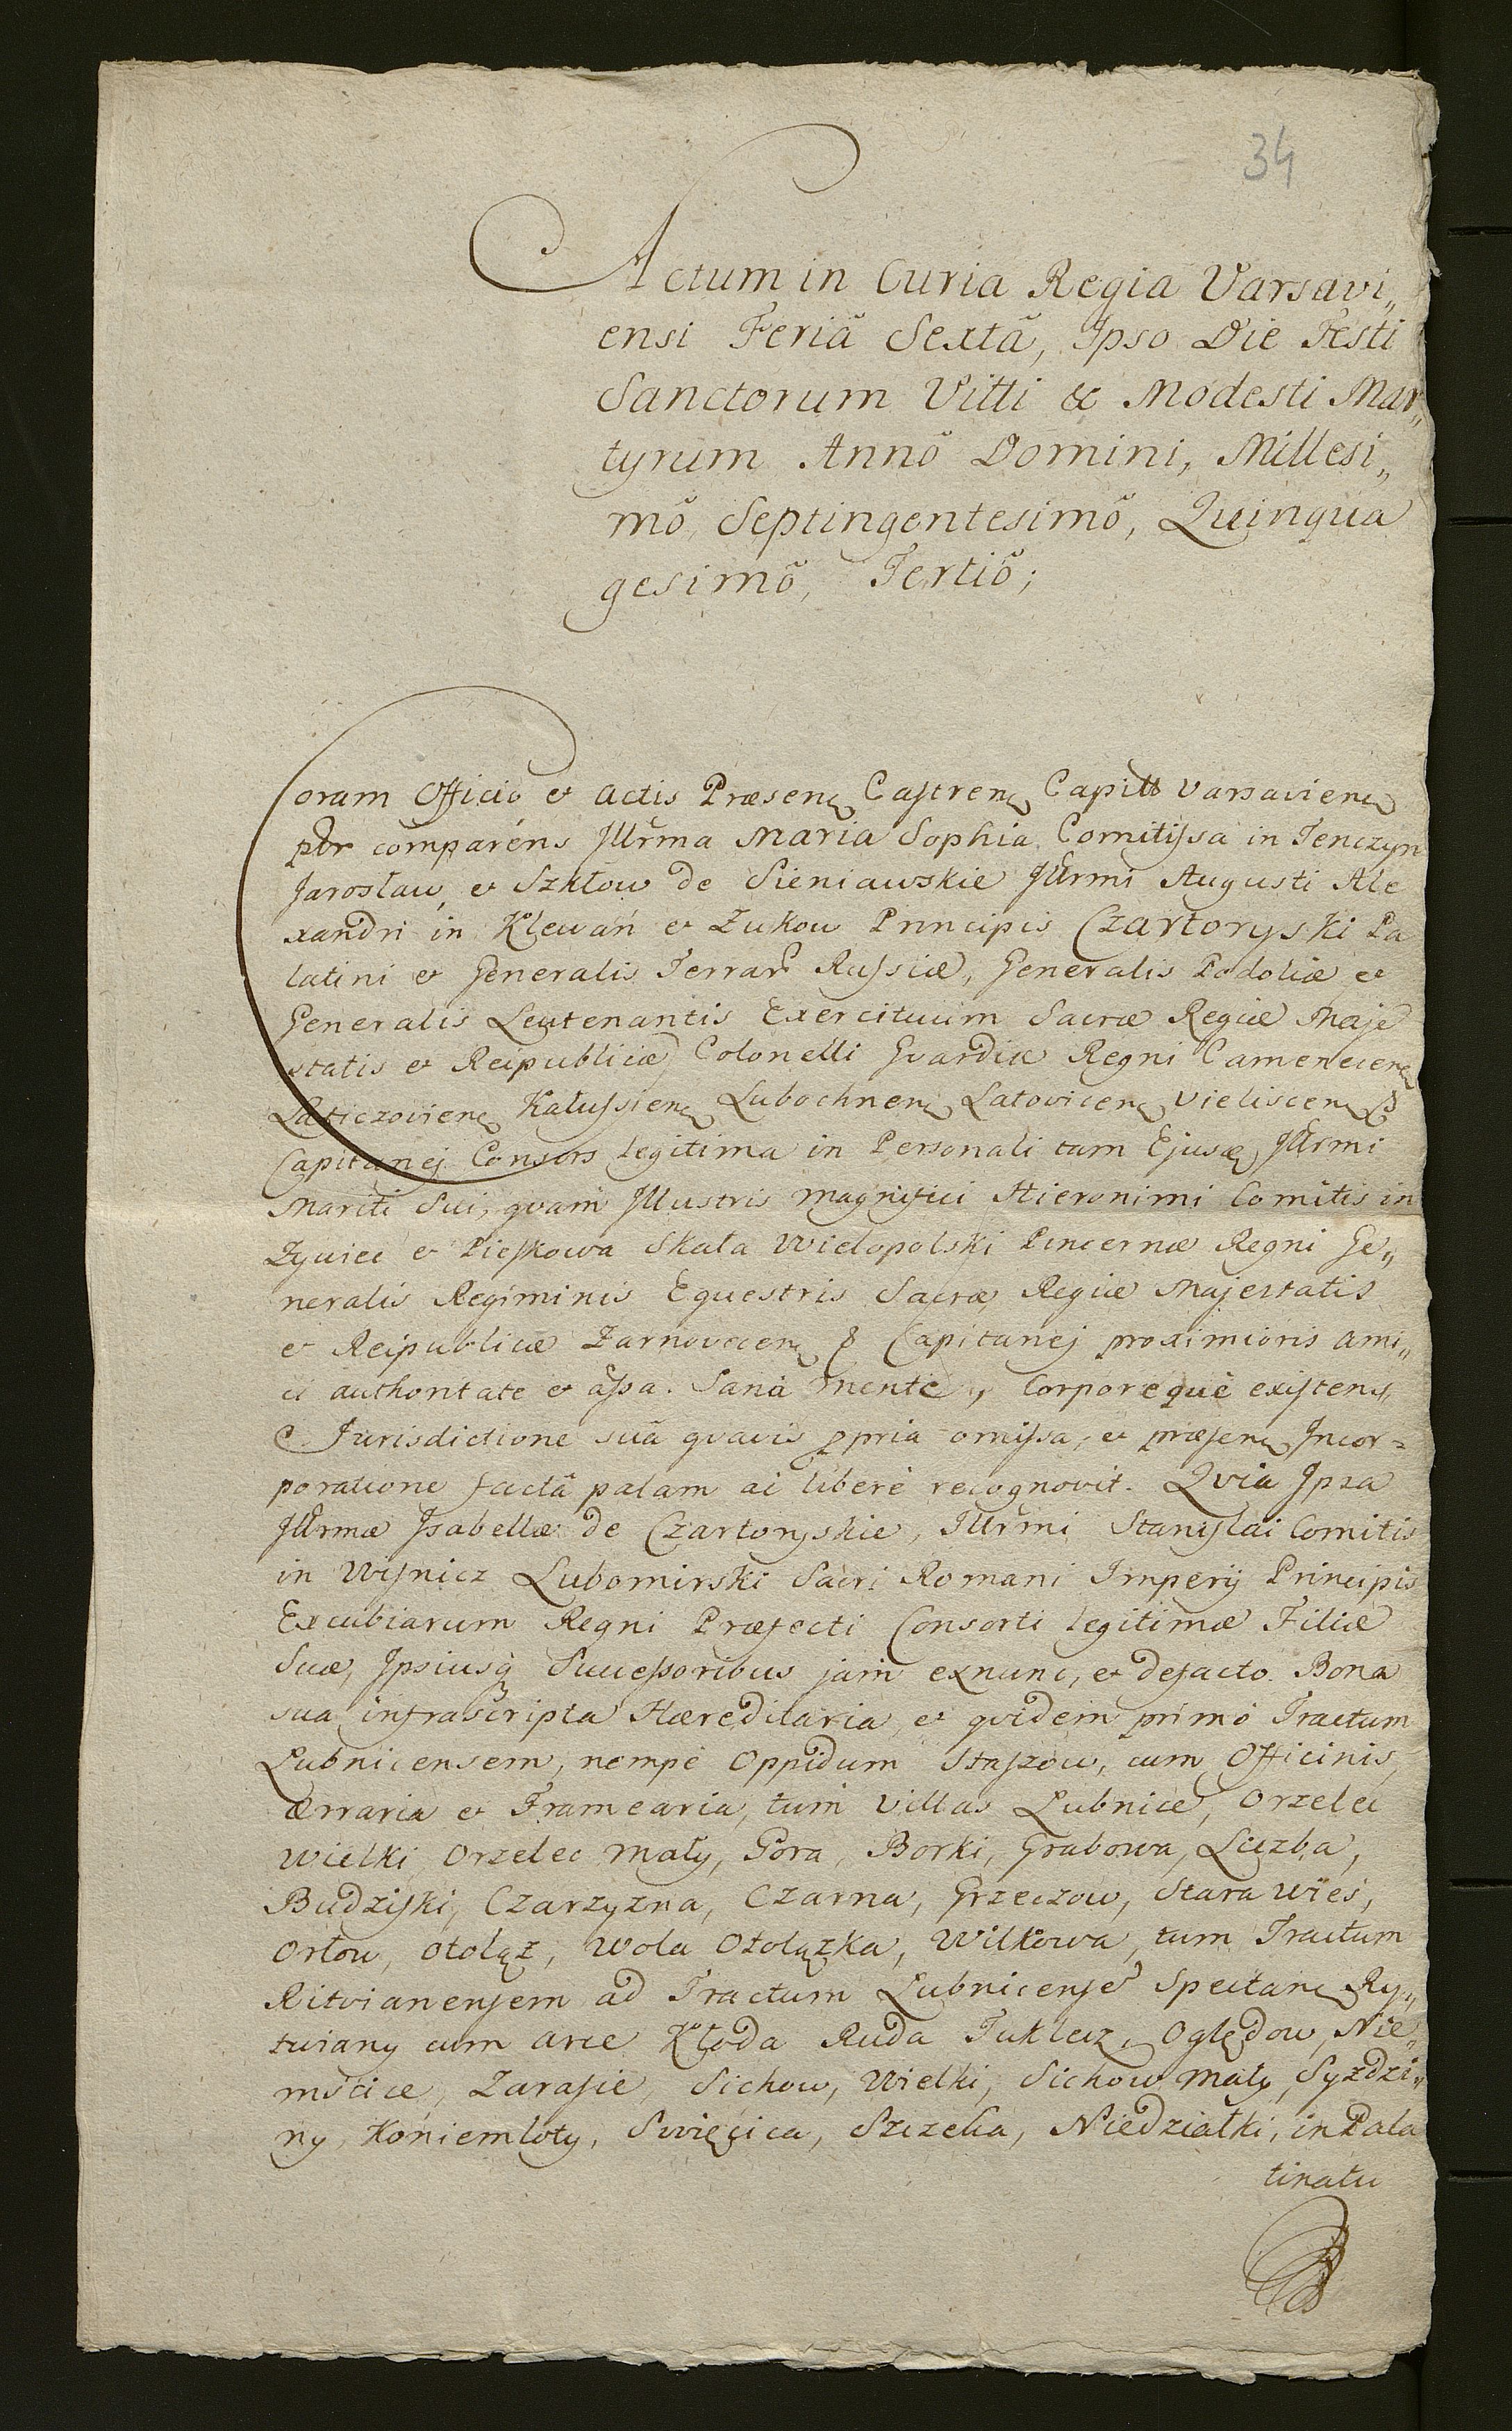 34
Actum in Curia Regia Varsavi„
ensi Feriã Sextã, Ipso Die Festi
Sanctorum Vitti & Modesti Mar„
tyrum Annõ Domini, Millesi„
mõ, Septingentesimõ, Quinqua
gesimõ, Tertiõ;
Coram Officio et Actis Præsen Castren Capitt Varsavien
ptr comparéns Jllrma Maria Sophia Comitissa in Tenczyn
Jarosław, et Szkłow de Sieniawskie Jllrmi Augusti Ale
xandri in Klewań et Zukow Principis Czartoryski Pa
latini et Generalis Terrar Russiæ, Generalis Podoliæ et
Generalis Leutenantis Exercituum Sacræ Regiæ Maje
statis et Reipublicæ Colonelli Gvardiæ Regni Camenecen
Laticzovien Kałussien Lubochnen Latovicen Vieliscen &
Capitanej Consors legitima in Personali tam Ejusd Jllrmi
Mariti Sui, qvam Jllustris Magnifici Hieronimi Comitis in
Zywiec et Pieskowa Skała Wielopolski Pincernæ Regni Ge„
neralis Regiminis Equestris Sacræ Regiæ Majestatis
et Reipublicæ Zarnovecen & Capitanej proximioris ami„
ci authoritate et assa. Sanà mente, Corporequè existens
Jurisdictione suã qvavis ppria omissa, et præsen Jncor=
poratione factã palam ac liberè recognovit. Qvia Jpsa
Jllrmæ Jsabellæ de Czartoryskie, Jllrmi Stanislai Comitis
in Wisnicz Lubomirski Sacri Romani Jmperij Principis
Excubiarum Regni Præfecti Consorti legitimæ Filiæ
Suæ, Jpsiusq Successoribus jam exnunc, et defacto. Bona
sua infrascripta Hæreditaria, et qvidem primò Tractum
Lubnicensem, nempè Oppidum Staszow, cum Officinis,
ærraria et Framearia, tum Villas Lubnice, Orzelec
Wielki Orzelec Mały, Gora, Borki, Grabowa, Liczba,
Budziski, Czarzyzna, Czarna, Grzeczow, Stara Wieś,
Orłow, Otoląz, Wola Otolązka, Wilkowa, tum Tractum
Ritvianensem ad Tractum Lubnicense Spectan Ry„
twiany cum arce Kłoda Ruda Tuklecz, Oględow, Nie„
mścice, Zarasie, Sichow, Wielki, Sichow Mały, Syzdzi„
ny, Koniemłoty, Swięcica, Szczeka, Niedziałki, in Pala
tinatu